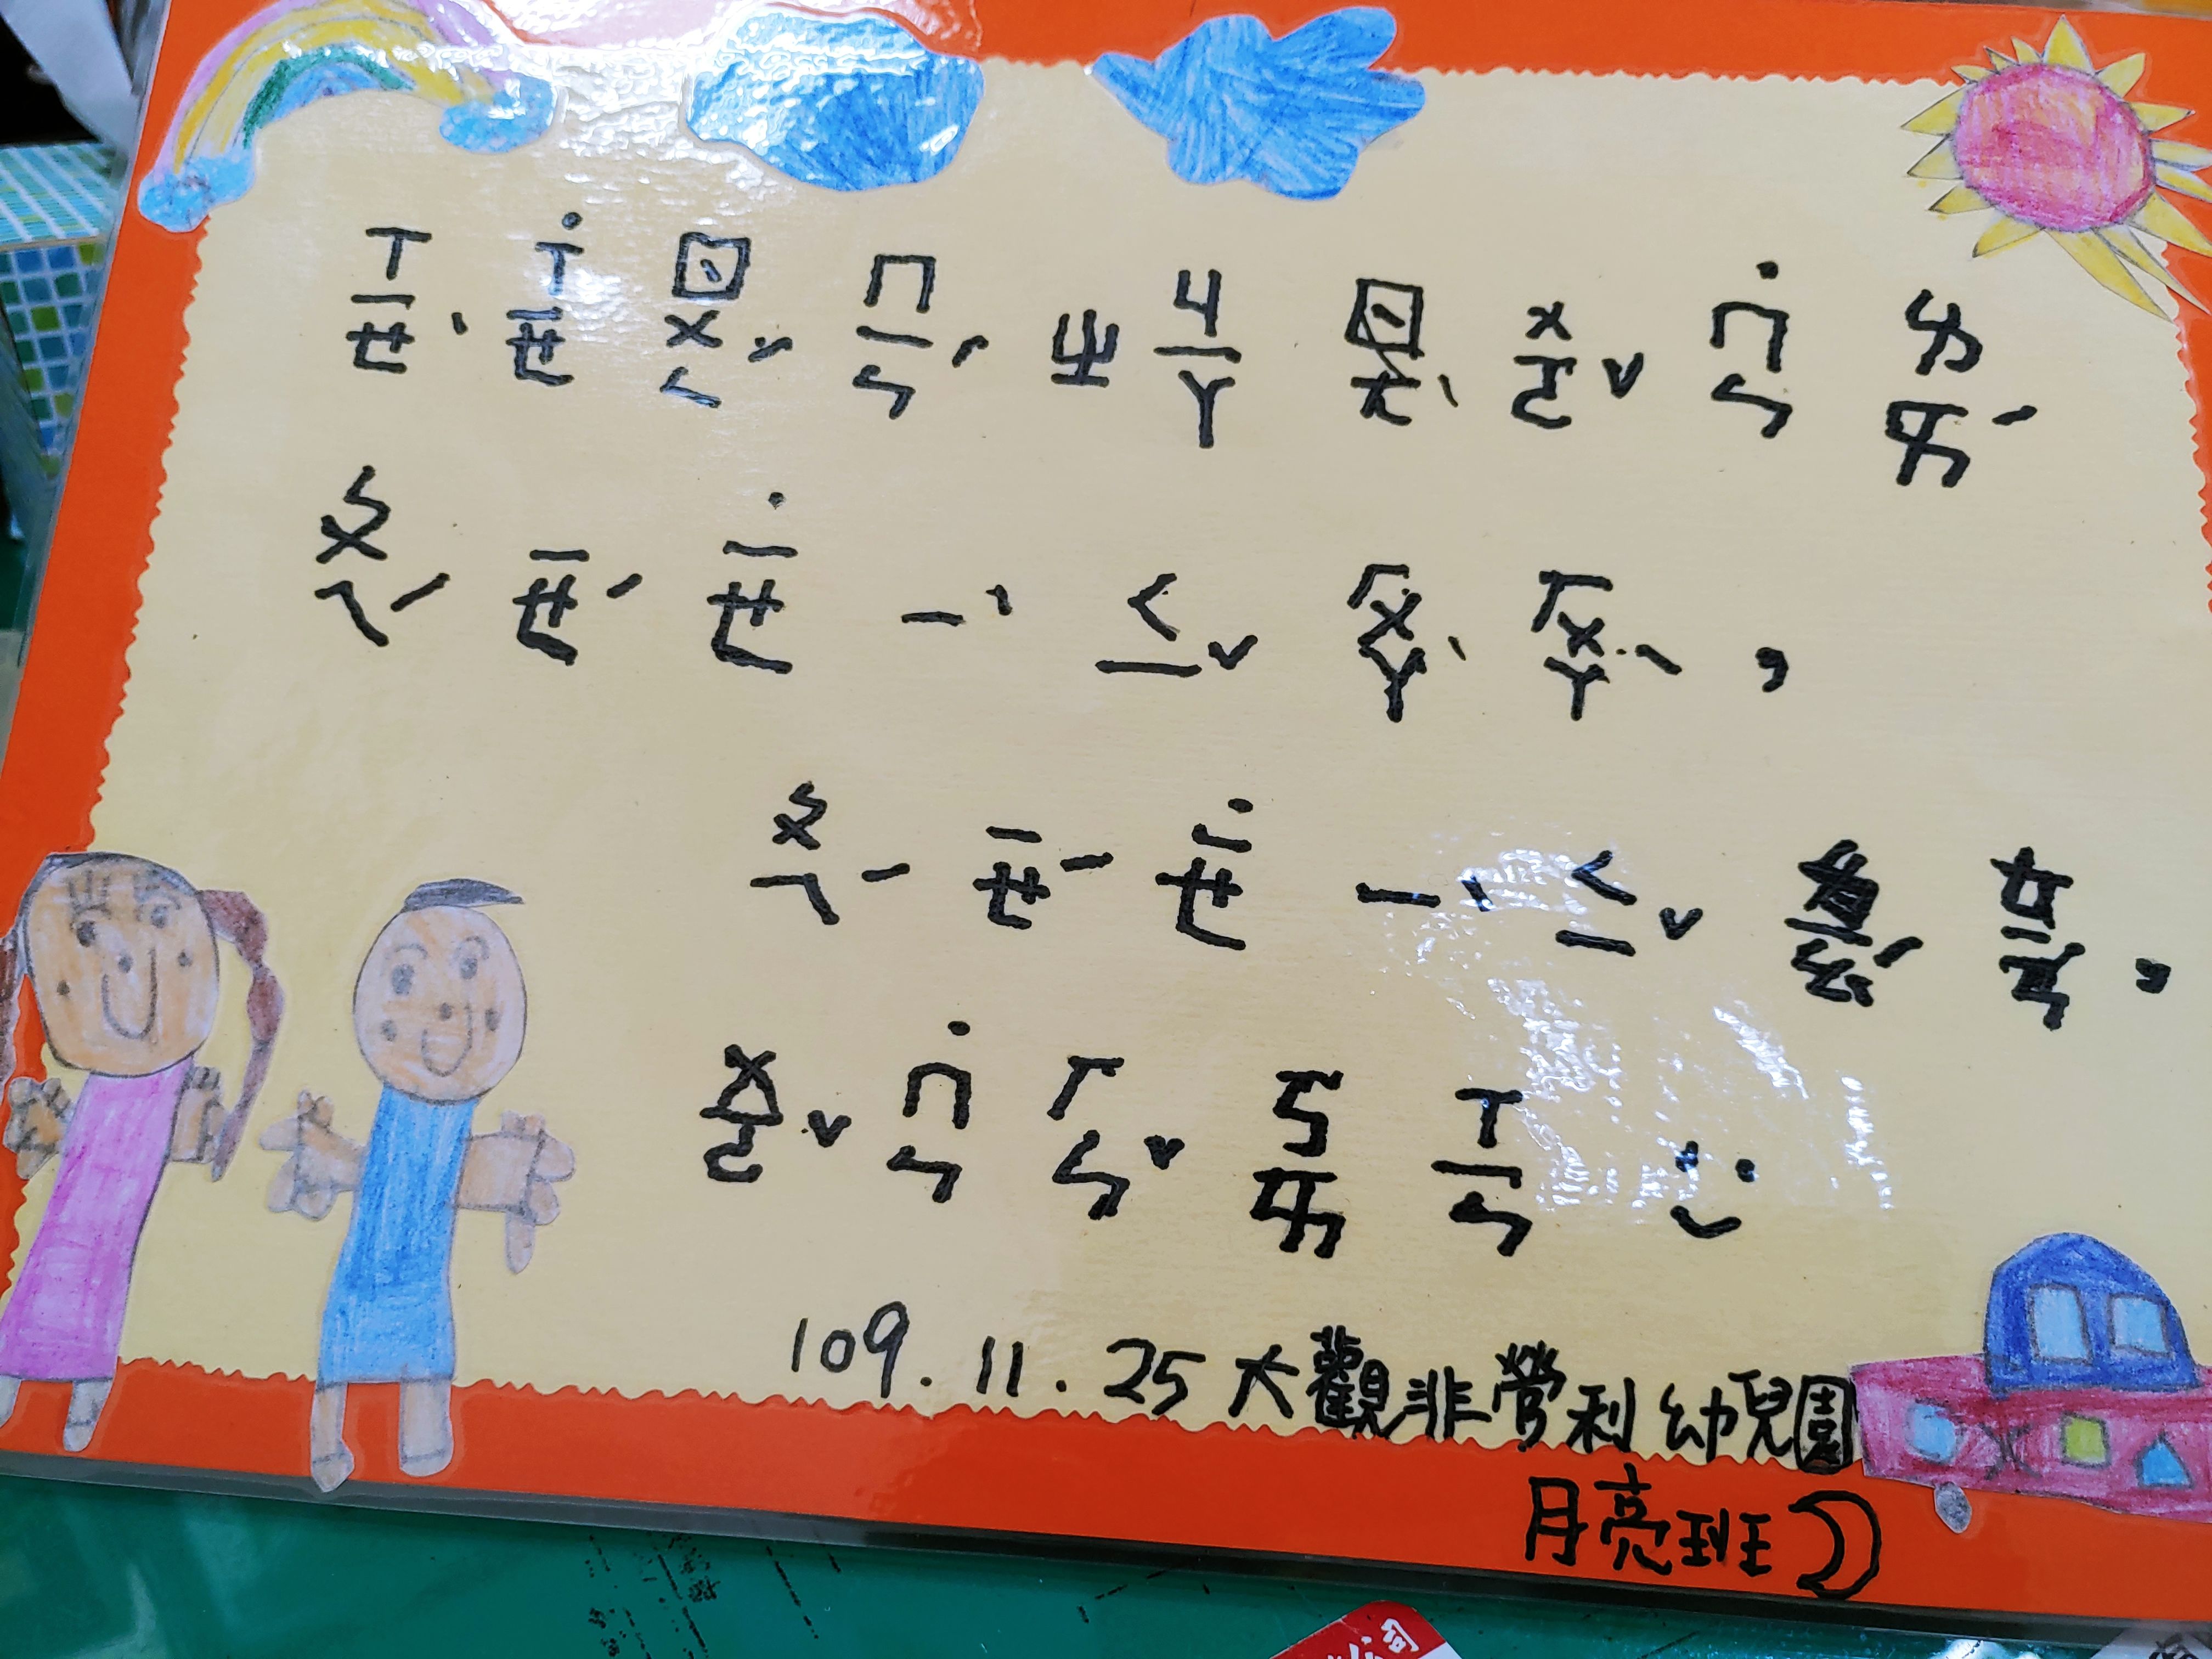 ㄒㄧㄝˋ ˙ㄒㄧㄝ ㄖㄨㄥˊ ㄇㄧㄣˊ ㄓ ㄐㄧㄚ ㄖㄤˋ ㄨㄛˇ ˙ㄇㄣ ㄌㄞˊ
ㄆㄟˊ ㄧㄝˊ ˙ㄧㄝ ㄧˋ ㄑㄧˇ ㄏㄨㄚˋ ㄏㄨㄚˋ ，
ㄆㄟˊ ㄧㄝˊ ˙ㄧㄝ ㄧˋ ㄑㄧˇ ㄌㄧㄠˊ ㄊㄧㄢ ，
ㄨㄛˇ ˙ㄇㄣ ㄏㄣˇ ㄎㄞ ㄒㄧㄣ
109.11.25大觀非營利幼兒園
月亮班
公司